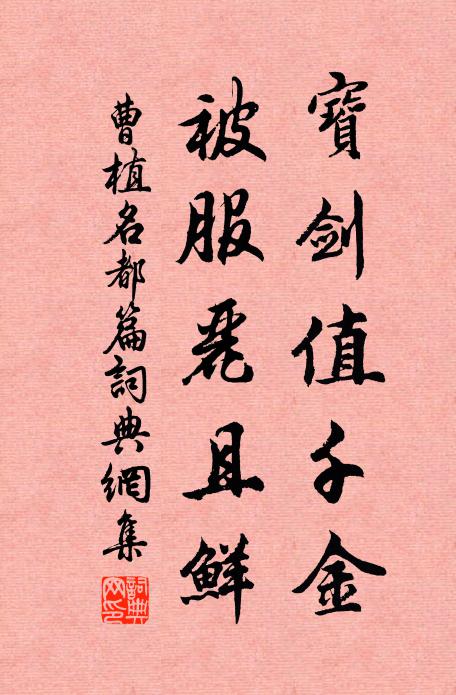 寶劍值千金
被服麗且鮮
曹植名都篇詞典網集
詞典網印